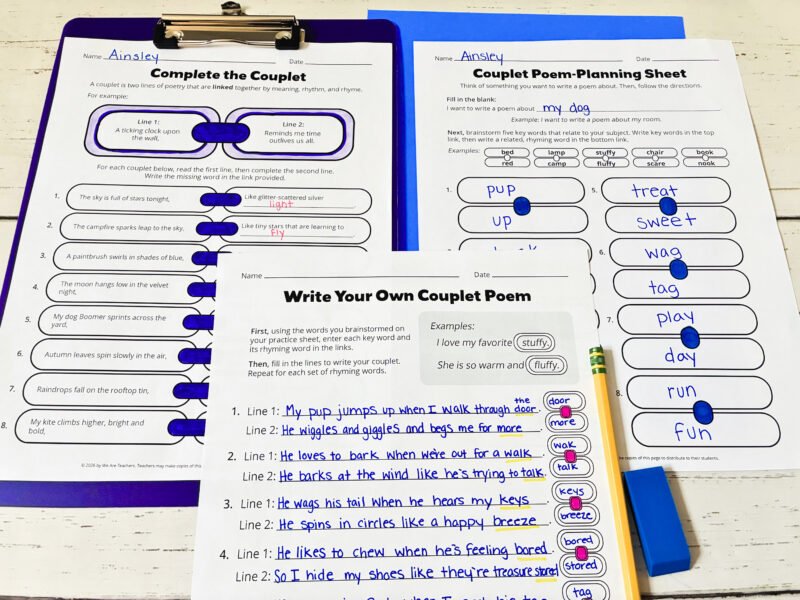 Name Ainsley Date
Complete the Couplet
A couplet is two lines of poetry that are linked together by meaning, rhythm, and rhyme.
For example:
Line 1:
A ticking clock upon
the wall,
Line 2:
Reminds me time
outlives us all.
For each couplet below, read the first line, then complete the second line.
Write the missing word in the link provided.
1. The sky is full of stars tonight,
Like glitter-scattered silver
light
2. The campfire sparks leap to the sky,
Like tiny stars that are learning to
fly
3. A paintbrush swirls in shades of blue,
4. The moon hangs low in the velvet
night,
5. My dog Boomer sprints across the
yard,
6. Autumn leaves spin slowly in the air,
7. Raindrops fall on the rooftop tin,
8. My kite climbs higher, bright and
bold,
© 2026 by We Are Teachers. Teachers may make copies of this
Name Ainsley Date
Couplet Poem-Planning Sheet
Think of something you want to write a poem about. Then, follow the directions.
Fill in the blank:
I want to write a poem about my dog
Example: I want to write a poem about my room.
Next, brainstorm five key words that relate to your subject. Write key words in the top
link, then write a related, rhyming word in the bottom link.
Examples:
bed
red
lamp
camp
stuffy
fluffy
chair
scare
book
nook
1. pup
up
5. treat
sweet
6. wag
tag
7. play
day
8. run
fun
copies of this page to distribute to their students.
Name Date
Write Your Own Couplet Poem
First, using the words you brainstormed on
your practice sheet, enter each key word and
its rhyming word in the links.
Then, fill in the lines to write your couplet.
Repeat for each set of rhyming words.
Examples:
I love my favorite stuffy.
She is so warm and fluffy.
1. Line 1: My pup jumps up when I walk through the door.
Line 2: He wiggles and giggles and begs me for more
door
more
2. Line 1: He loves to bark when we're out for a walk.
Line 2: He barks at the wind like he's trying to talk.
walk
talk
3. Line 1: He wags his tail when he hears my keys.
Line 2: He spins in circles like a happy breeze.
keys
breeze
4. Line 1: He likes to chew when he's feeling bored.
Line 2: So I hide my shoes like they're treasure stored
bored
stored
tag